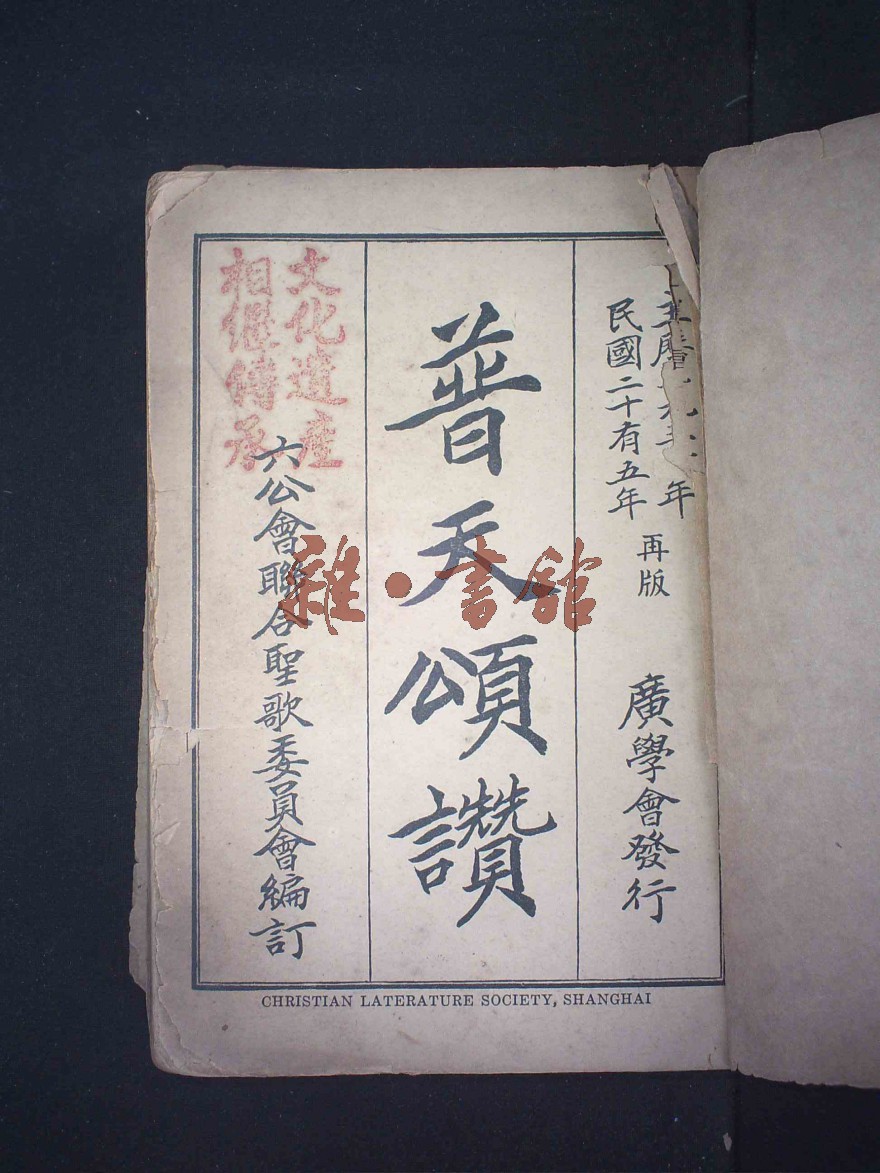 年
民國二十有五年
再版
廣學會發行
普天頌讚
六公會聯合聖歌委員會編訂
文化遺產
相繼傳承
雜·書館
CHRISTIAN LATERATURE SOCIETY, SHANGHAI